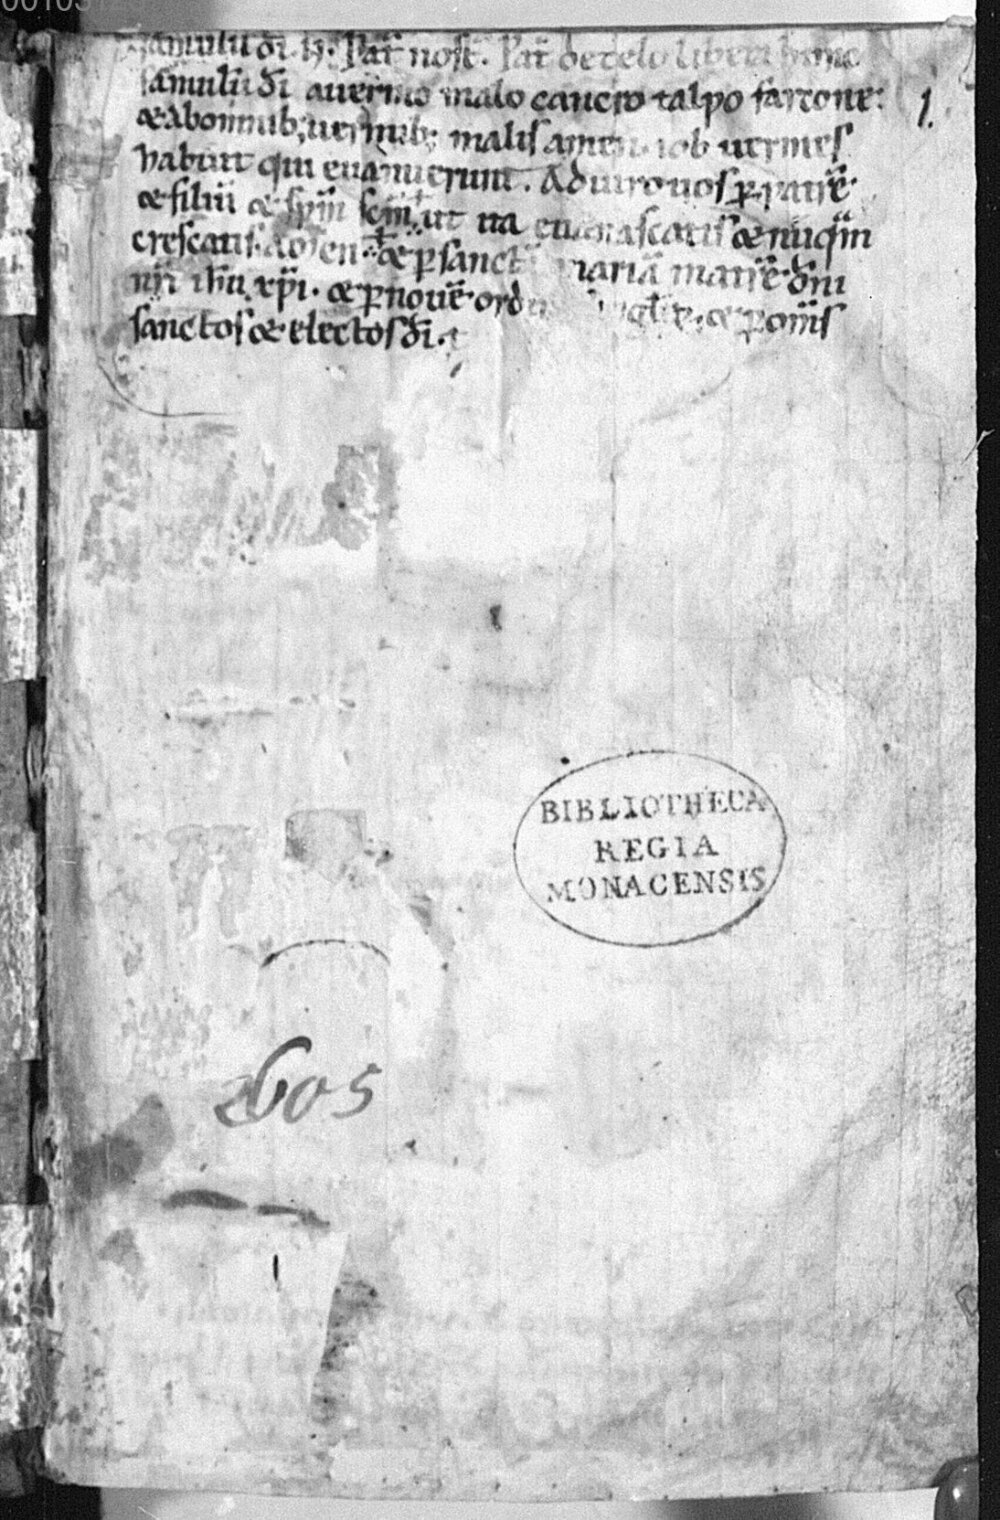 famulū dī. N. Pat̄ nost̄. Pat̄ de celo libera hunc
famulū dī a uermo malo cancro talpo fartone:
& ab omnib; uermib; malis amen. iob uermes
habuit qui euanuerunt. Adiuro uos p patrē.
& filiū & sp̄m sc̄m. ut ita euanascatis & nūqm̄
crescatis. Amen. & p sanct mariā matrē dn̄i
nr̄i ih̄u xp̄i. & p nouē ord & p om̄s
sanctos & electos dī.
1.
BIBLIOTHECA
REGIA
MONACENSIS
2605